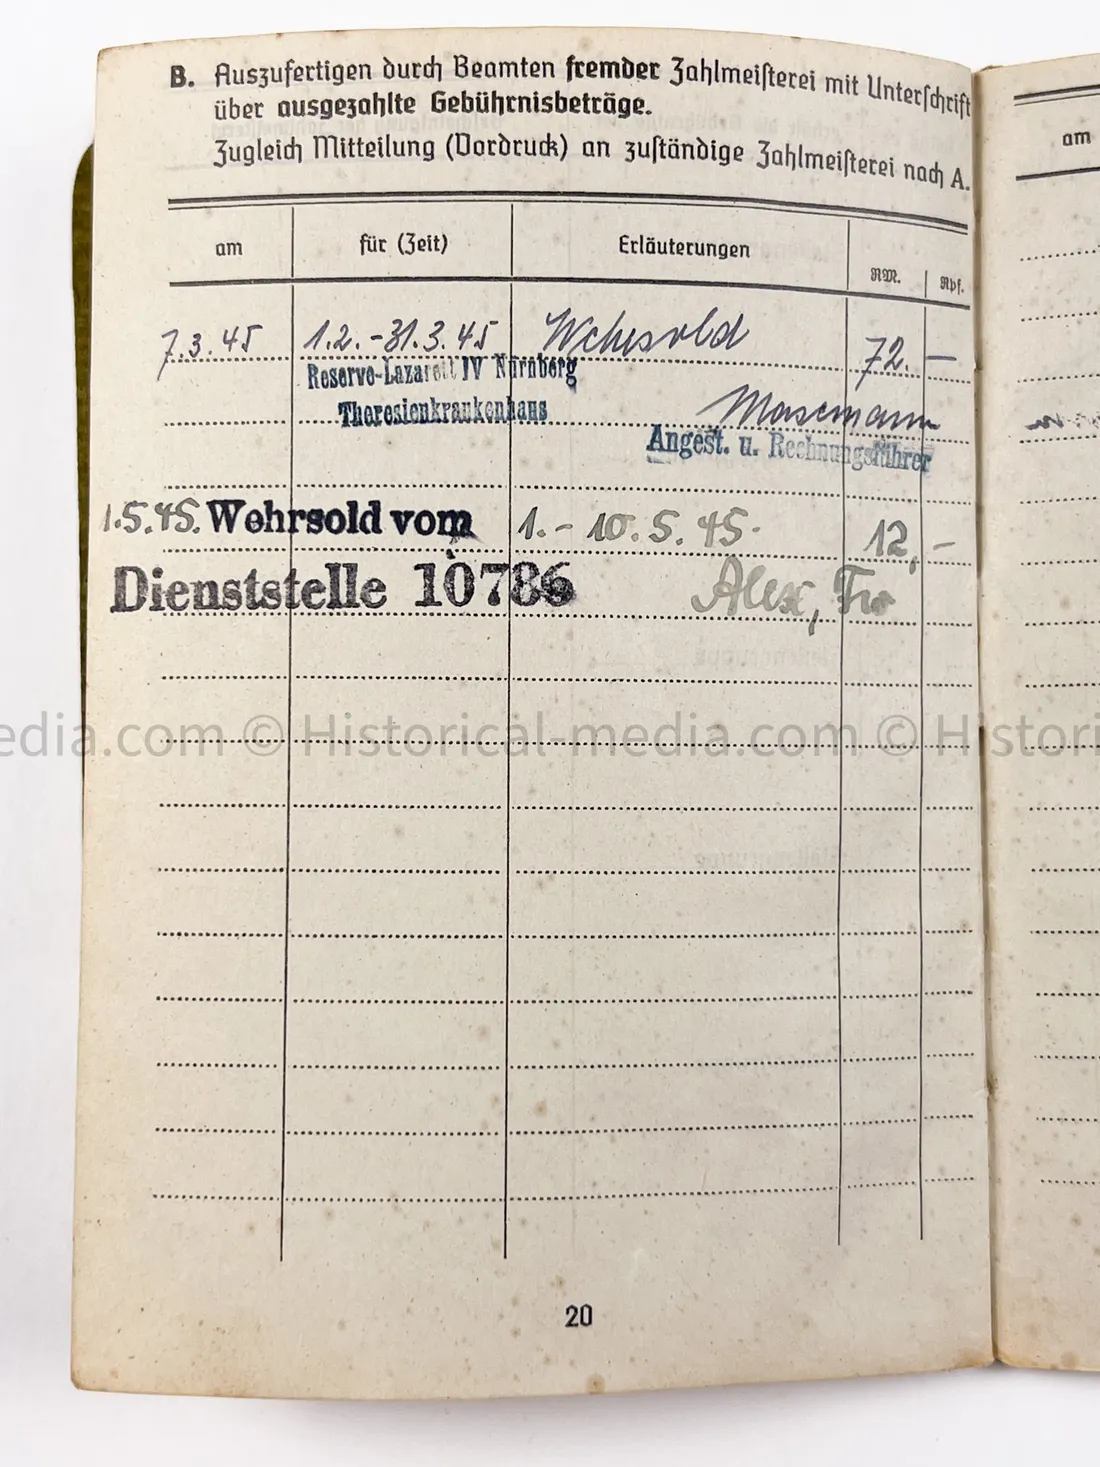 B. Auszufertigen durch Beamten fremder Zahlmeisterei mit Unterschrift
über ausgezahlte Gebührnisbeträge.
Zugleich Mitteilung (Vordruck) an zuständige Zahlmeisterei nach A.
am für (Zeit) Erläuterungen RM. Rpf.
am
7.3.45 1.2.-31.3.45 Wehrsold 72. —
Reserve-Lazarett IV Nürnberg
Theresienkrankenhaus
Masemann
Angest. u. Rechnungsführer
1.5.45. Wehrsold vom 1.- 10.5.45. 12,-
Dienststelle 10786 Alex,
edia.com © Historical-media.com © Histori
20